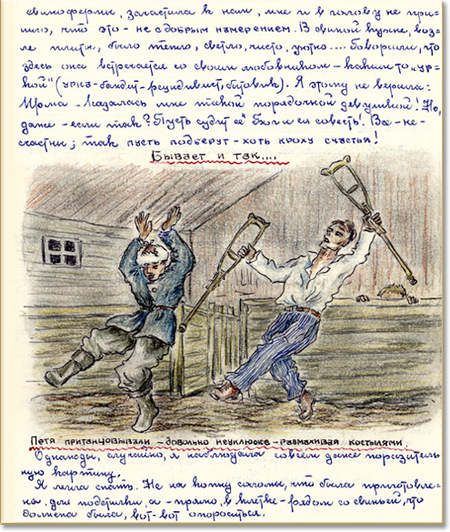 свиноферми, зачастила к нам, мне и в голову не при-
шло, что это - не с добрым намерением. В свиной кухне, воз-
ле плиты, было тепло, светло, чисто, уютно.... Говорили, что
здесь она встречается со своим любовником - каким-то "ур-
кой" (урка-бандит-рецидивист, бытовик). Я этому не верила:
Ирма - казалась мне такой порядочной девушкой! Но,
даже - если так? Пусть судит её Бог и ея совесть! Все - не-
счастны; так пусть подберут - хоть кроху счастья!
Бывает и так....
Петя пританцовывали - довольно неуклюже - размахивая костылями.
Однажды, случайно, я наблюдала совсем даже поразитель-
ную картину.
Я легла спать. Не на копну соломы, что была приготовле-
на для подстилки, а - прямо, в клетке - рядом со свиньей, что
должна была, вот-вот опороситься.